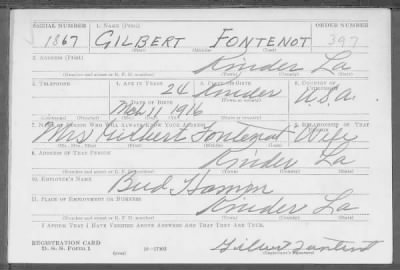 SERIAL NUMBER 1. NAME (Print) ORDER NUMBER
1867 GILBERT FONTENOT 397
(First) (Middle) (Last)
2. ADDRESS (Print)
Kinder La
(Number and street or R. F. D. number) (Town) (County) (State)
3. TELEPHONE 4. AGE IN YEARS 5. PLACE OF BIRTH 6. COUNTRY OF
24 Kinder U.S.A.
DATE OF BIRTH (Town or county)
11 1916
(Exchange) (Number) (Mo.) (Day) (Yr.) (State or country)
7. NAME OF PERSON WHO WILL ALWAYS KNOW YOUR ADDRESS 8. RELATIONSHIP OF THAT PERSON
Mrs Gilbert Fontenot Wife
(Mr., Mrs., Miss) (First) (Middle) (Last)
9. ADDRESS OF THAT PERSON
Kinder La
(Number and street or R. F. D. number) (Town) (County) (State)
10. EMPLOYER'S NAME
Bud Hamm
11. PLACE OF EMPLOYMENT OR BUSINESS
Kinder La
(Number and street or R. F. D. number) (Town) (County) (State)
I AFFIRM THAT I HAVE VERIFIED ABOVE ANSWERS AND THAT THEY ARE TRUE.
REGISTRATION CARD
D. S. S. Form 1
(over) 16—17105
Gilbert Fontenot
(Registrant's Signature)